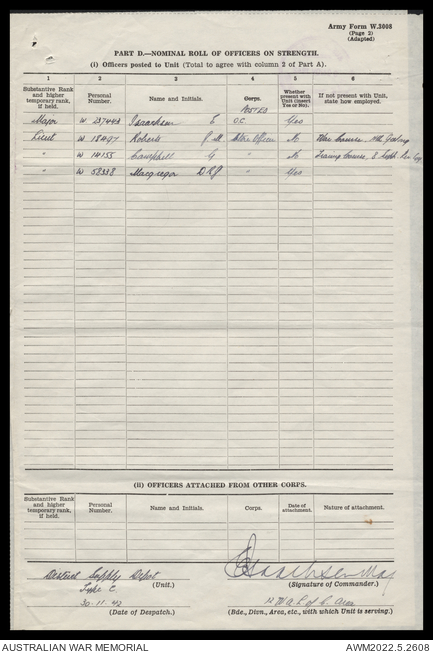 Army Form W.3008
(Page 2)
(Adapted)
PART D.—NOMINAL ROLL OF OFFICERS ON STRENGTH.
(i) Officers posted to Unit (Total to agree with column 2 of Part A).
1 2 3 4 5 6
Substantive Rank and higher temporary rank, if held. Personal Number. Name and Initials. Corps. Whether present with Unit (insert Yes or No). If not present with Unit, state how employed.
POSTED
Major W 237443 Isaachsen O.C. Yes
Lieut W 18497 Roberts J M Officer No War Course
" W 14155 Campbell G " No Training Course,
" W 58338 Macgregor D R J " Yes
(ii) OFFICERS ATTACHED FROM OTHER CORPS.
Substantive Rank and higher temporary rank, if held. Personal Number. Name and Initials. Corps. Date of attachment. Nature of attachment.
District Supply Depot (Unit.)
Type C.
30.11.42 (Date of Despatch.)
Isaachsen Maj
(Signature of Commander.)
12 W A L of C. Area
(Bde., Divn., Area, etc., with which Unit is serving.)
AUSTRALIAN WAR MEMORIAL AWM2022.5.2608